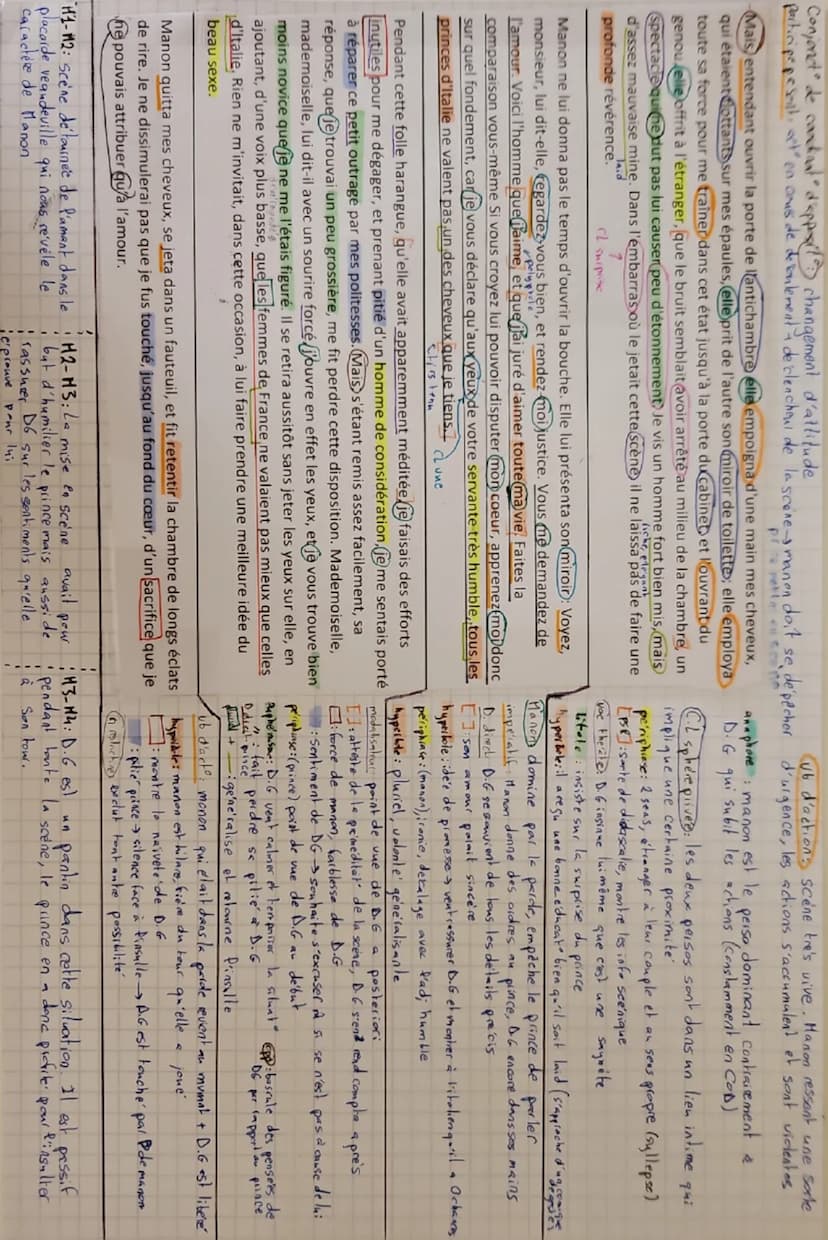 Conjonct° de coordinat° d'opposit° → changement d'attitude
participe présent: act° en cours de déroulement → déclencheur de la scène → manon doit se dépêcher
Mais, entendant ouvrir la porte de l'antichambre, elle empoigna d'une main mes cheveux,
qui étaient flottants sur mes épaules, elle prit de l'autre son miroir de toilette; elle employa
toute sa force pour me traîner dans cet état jusqu'à la porte du cabinet, et l'ouvrant du
genou, elle offrit à l'étranger, que le bruit semblait avoir arrêté au milieu de la chambre, un
spectacle qui ne dut pas lui causer peu d'étonnement. Je vis un homme fort bien mis, mais
riche, élégant
d'assez mauvaise mine. Dans l'embarras où le jetait cette scène, il ne laissa pas de faire une
laid
profonde révérence.
CL surprise
Manon ne lui donna pas le temps d'ouvrir la bouche. Elle lui présenta son miroir : Voyez,
monsieur, lui dit-elle, regardez-vous bien, et rendez-moi justice. Vous me demandez de
l'amour. Voici l'homme que j'aime, et que j'ai juré d'aimer toute ma vie. Faites la
comparaison vous-même Si vous croyez lui pouvoir disputer mon coeur, apprenez-moi donc
sur quel fondement, car je vous déclare qu'aux yeux de votre servante très humble, tous les
princes d'Italie ne valent pas un des cheveux que je tiens.
Pendant cette folle harangue, qu'elle avait apparemment méditée, je faisais des efforts
inutiles pour me dégager, et prenant pitié d'un homme de considération, je me sentais porté
à réparer ce petit outrage par mes politesses. Mais, s'étant remis assez facilement, sa
réponse, que je trouvai un peu grossière, me fit perdre cette disposition. Mademoiselle,
mademoiselle, lui dit-il avec un sourire forcé, j'ouvre en effet les yeux, et je vous trouve bien
moins novice que je ne me l'étais figuré. Il se retira aussitôt sans jeter les yeux sur elle, en
ajoutant, d'une voix plus basse, que les femmes de France ne valaient pas mieux que celles
d'Italie. Rien ne m'invitait, dans cette occasion, à lui faire prendre une meilleure idée du
beau sexe.
Manon quitta mes cheveux, se jeta dans un fauteuil, et fit retentir la chambre de longs éclats
de rire. Je ne dissimulerai pas que je fus touché, jusqu'au fond du cœur, d'un sacrifice que je
ne pouvais attribuer qu'à l'amour.
Vb d'action: scène très vive. Manon ressent une sorte
d'urgence, les actions s'accumulent et sont violentes
anaphore: manon est le perso dominant contrairement à
D.G qui subit les actions (constamment en COD)
CL sphère privée: les deux persos sont dans un lieu intime qui
implique une certaine proximité
périphrase: 2 sens, étranger à leur couple et au sens propre (syllepse)
sorte de didascalie, montre les info scénique
D.G insinue lui même que c'est une saynète
litote: insiste sur la surprise du prince
hyperbole: il a reçu une bonne éducat° bien qu'il soit laid
Manon domine par la parole, empêche le prince de parler
impératif: Manon donne des ordres au prince, D.G encore dans ses mains
D. direct: D.G se souvient de tous les détails précis
[ ]: son amour paraît sincère
hyperbole: idée de promesse → veut rassurer D.G et montrer à l'italien qu'il a 0 chances
périphrase: (manon), ironie, décalage avec l'adj humble
hyperbole: pluriel, volonté généralisante
modalisateur: point de vue de D.G a posteriori
[ ]: atteste de la préméditat° de la scène, D.G s'en rend compte après
: force de manon, faiblesse de D.G
: sentiment de DG → souhaite s'excuser à si se n'est pas à cause de lui
périphrase: (prince) point de vue de D.G au début
euphémisme: D.G veut calmer et temporiser la situat°
opp: bascule des pensées de DG par rapport au prince
D. direct prince: fait perdre sa pitié à D.G
pluriel + : généralise et retourne l'insulte
Vb d'act°: manon qui était dans la parole revient au mvmnt + D.G est libéré
hyperbole: manon est hilare, fière du tour qu'elle a joué
: montre la naïveté de D.G
: pitié prince → silence face à l'insulte → D.G est touché par manon
exclut tout autre possibilité
M1-M2: scène détournée de l'amant dans le
placard vaudeville qui nous révèle le
caractère de Manon
M2-M3: La mise en scène avait pour
but d'humilier le prince mais aussi de
rassurer DG sur les sentiments qu'elle
éprouve pour lui
M3-M4: D.G est un pantin dans cette situation. Il est passif
pendant toute la scène, le prince en a donc profité pour l'insulter
à son tour.